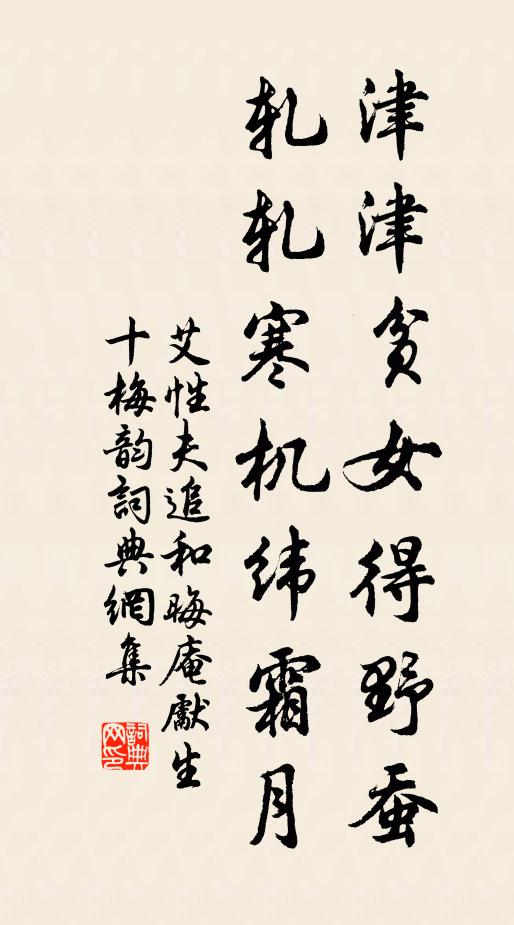 津津贫女得野蚕
轧轧寒机纬霜月
艾性夫追和晦庵獻生
十梅韵詞典網集
詞典网印